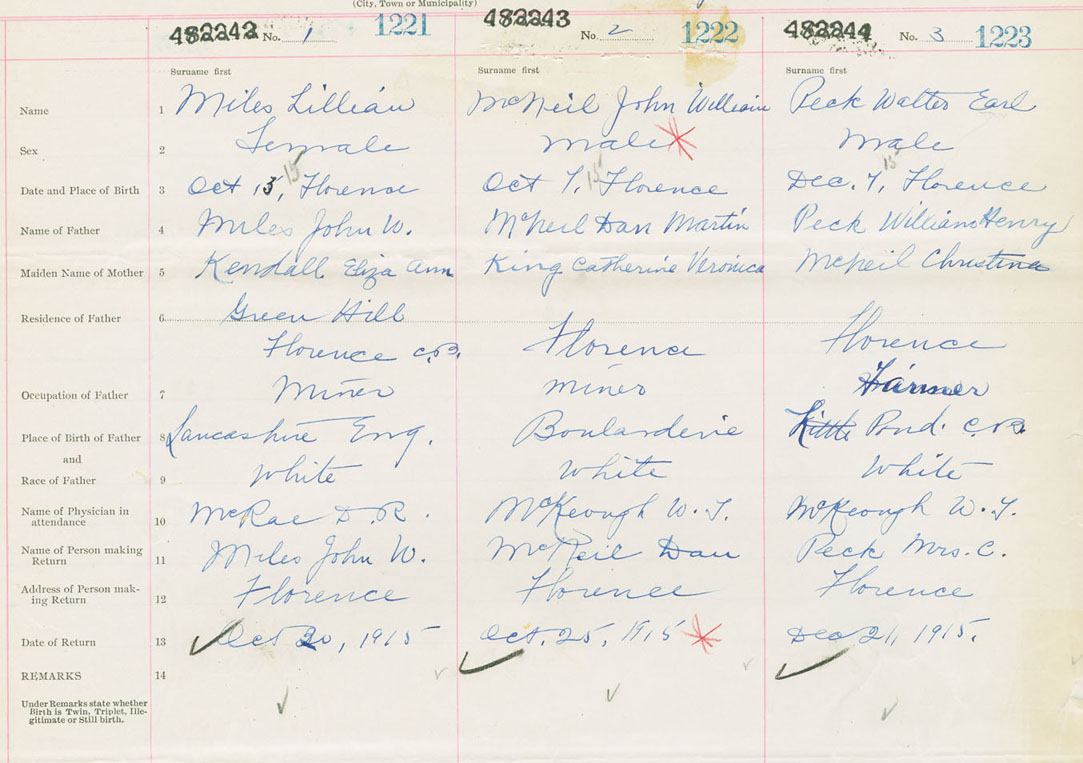 (City, Town or Municipality)
482242 No. 1 1221 482243 No. 2 1222 482244 No. 3 1223
Surname first Surname first Surname first
Name 1 Miles Lillian McNeil John William Peck Walter Earl
Sex 2 Female male male
15 15 15
Date and Place of Birth 3 Oct 13, Florence Oct 7, Florence Dec. 7, Florence
Name of Father 4 Miles John W. McNeil Dan Martin Peck William Henry
Maiden Name of Mother 5 Kendall Eliza Ann King Catherine Veronica McNeil Christina
Residence of Father 6 Green Hill
Florence C.B. Florence Florence
Occupation of Father 7 Miner miner Farmer
Place of Birth of Father 8 Lancashire Eng. Boulardrie Little Pond. C.B.
and
Race of Father 9 White White White
Name of Physician in
attendance 10 McRae D.R. McKeough W.F. McKeough W.F.
Name of Person making
Return 11 Miles John W. McNeil Dan Peck Mrs. C.
Address of Person mak-
ing Return 12 Florence Florence Florence
Date of Return 13 Oct 20, 1915 Oct. 25, 1915 Dec 21, 1915.
REMARKS 14
Under Remarks state whether
Birth is Twin, Triplet, Ille-
gitimate or Still birth.